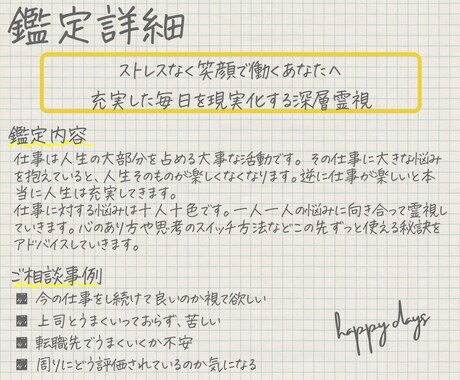 鑑定詳細
ストレスなく笑顔で働くあなたへ
充実した毎日を現実化する深層霊視
鑑定内容
仕事は人生の大部分を占める大事な活動です。その仕事に大きな悩み
を抱えていると、人生そのものが楽しくなくなります。逆に仕事が楽しいと本
当に人生は充実してきます。
仕事に対する悩みは十人十色です。一人一人の悩みに向き合って霊視し
ていきます。心のあり方や思考のスイッチ方法などこの先ずっと使える秘訣を
アドバイスしていきます。
ご相談事例
■ 今の仕事をし続けて良いのか視て欲しい
■ 上司とうまくいっておらず、苦しい
■ 転職先でうまくいくか不安
■ 周りにどう評価されているのか気になる
happy days